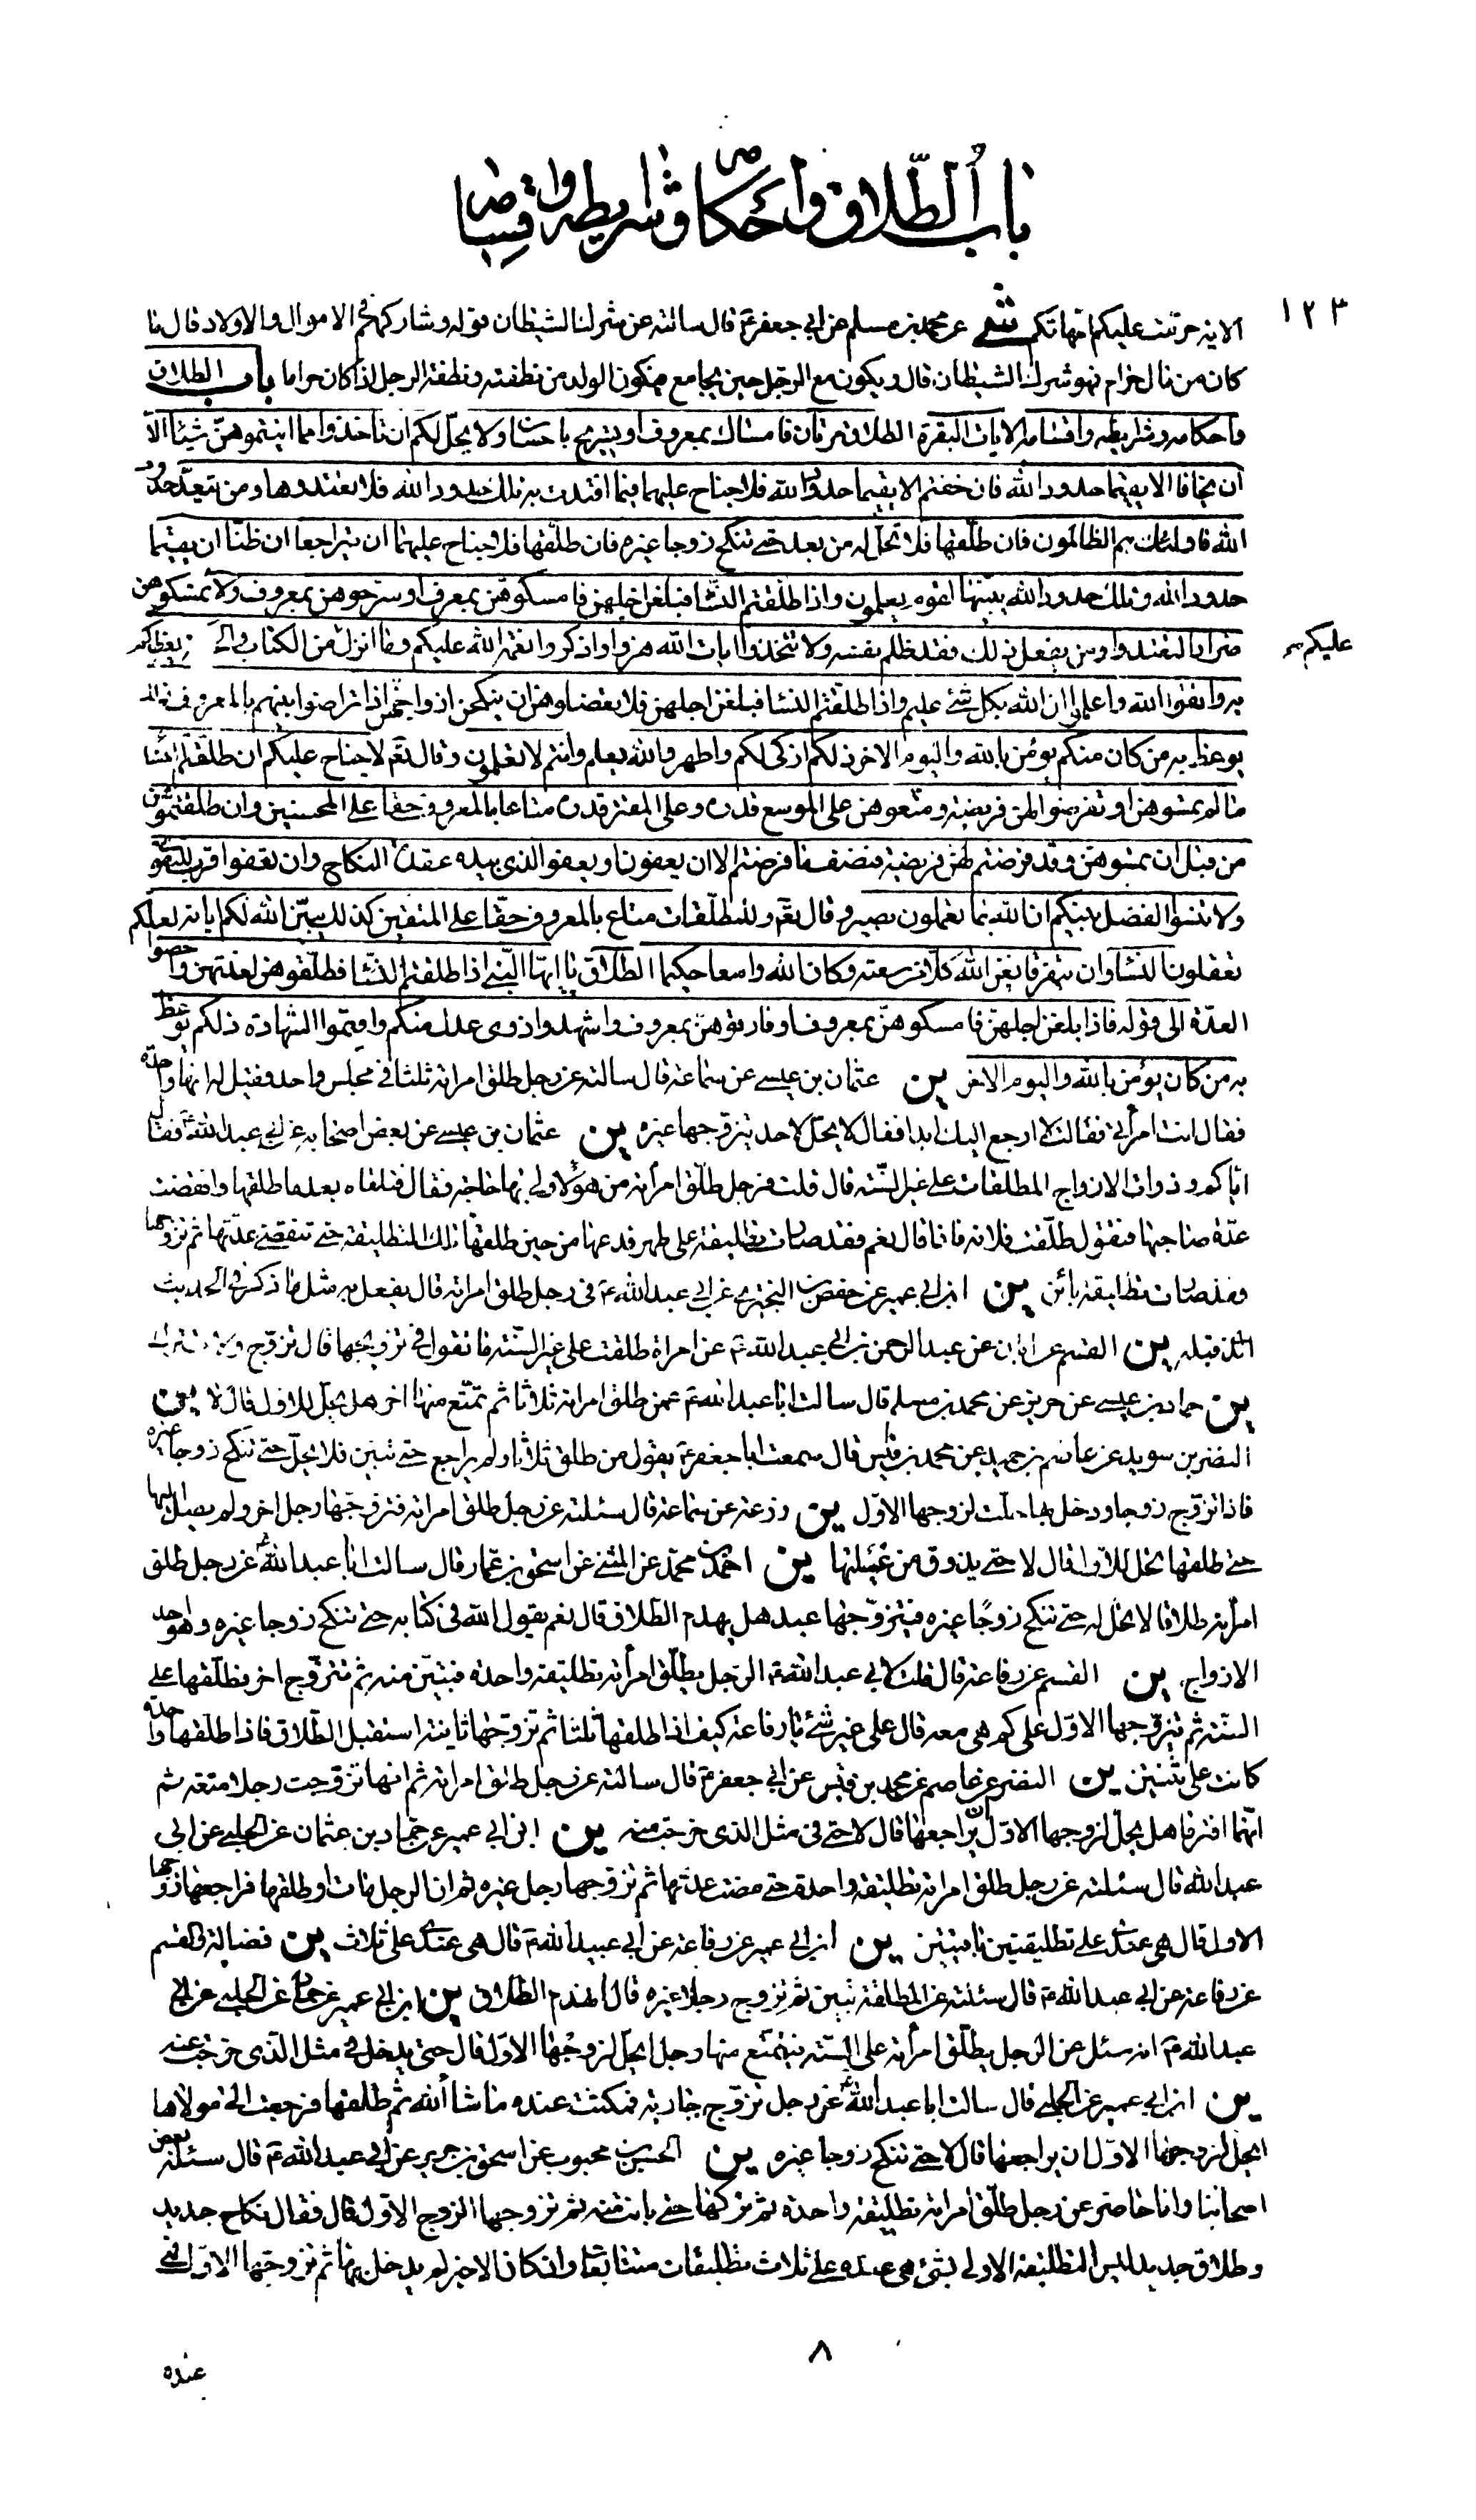 باب الطّلاق وأحكامه وشرايطه واقسامه
١٢٣
الاية حرّمت عليكم امّهاتكم شى عن محمد بن مسلم عن ابي جعفر ع قال سالته عن شرك الشيطان قوله وشاركهم في الاموال والاولاد قال ما
كان من مال حرام فهو شرك الشيطان قال ويكون مع الرجل حين يجامع فيكون الولد من نطفته ونطفة الرجل اذا كان حراما باب الطلاق
واحكامه وشرايطه واقسامه الايات البقرة الطلاق مرتان فامساك بمعروف او تسريح باحسان ولا يحلّ لكم ان تاخذوا مما اتيتموهنّ شيئا الاّ
ان يخافا الا يقيما حدود الله فان خفتم الا يقيما حدود الله فلا جناح عليهما فيما افتدت به تلك حدود الله فلا تعتدوها ومن يتعدّ حدود
الله فاولئك هم الظالمون فان طلّقها فلا تحلّ له من بعد حتى تنكح زوجا غيره فان طلّقها فلا جناح عليهما ان يتراجعا ان ظنّا ان يقيما
حدود الله وتلك حدود الله يبيّنها لقوم يعلمون واذا طلّقتم النسّا فبلغن اجلهن فامسكوهنّ بمعروف او سرحوهن بمعروف ولا تمسكوهن
ضرارا لتعتدوا ومن يفعل ذلك فقد ظلم نفسه ولا تتخذوا ايات الله هزوا واذكروا نعمة الله عليكم وما انزل من الكتاب والحكمة يعظكم
عليكم
به واتقوا الله واعلموا ان الله بكل شئ عليم واذا طلقتم النسا فبلغن اجلهن فلا تعضلوهن ان ينكحن ازواجهن اذا تراضوا بينهم بالمعروف ذلك
يوعظ به من كان منكم يؤمن بالله واليوم الاخر ذلكم ازكى لكم واطهر والله يعلم وانتم لا تعلمون وقال تعم لا جناح عليكم ان طلقتم النسا
ما لم تمسّوهن او تفرضوا لهن فريضة ومتّعوهن على الموسع قدره وعلى المقتر قدره متاعا بالمعروف حقا على المحسنين وان طلقتموهن
من قبل ان تمسّوهنّ وقد فرضتم لهن فريضة فنصف ما فرضتم الا ان يعفون او يعفو الذي بيده عقدة النكاح وان تعفوا اقرب للتقوى
ولا تنسوا الفضل بينكم ان الله بما تعملون بصير وقال تعم وللمطلّقات متاع بالمعروف حقّا على المتقين كذلك يبيّن الله لكم اياته لعلّكم
تعقلون النسا وان يتفرقا يغن الله كلّا من سعته وكان الله واسعا حكيما الطلاق يا ايهّا النّبي اذا طلقتم النسّا فطلّقوهن لعدّتهن واحصوا
العدّة الى قوله فاذا بلغن اجلهنّ فامسكوهنّ بمعروف او فارقوهنّ بمعروف واشهدوا ذوى عدل منكم واقيموا الشهادة ذلكم يوعظ
به من كان يؤمن بالله واليوم الاخر ين عثمان بن عيسى عن سماعة قال سالته عن رجل طلق امراته ثلثا في مجلس واحد فقيل له انها واحدة
فقال لست امرأتي فقالت لا ارجع اليك ابدا فقال لا يحلّ لاحد يتزوجها غيره ين عثمان بن عيسى عن بعض اصحابه عن ابي عبد الله ع فقال
اياكم وذوات الازواج المطلّقات على غير السّنّة قال قلت فرجل طلّق امرأته من هؤلاء ولي بها حاجة فقال فتلقاه بعد ما طلقها وانقضت
عدّة صاحبها فتقول طلّقت فلانة فاذا قال نعم فقد صارت تطليقة على طهر فدعها من حين طلقها تلك التطليقة حتى تنقضى عدّتها ثم تزوجها
وقد صارت تطليقة بائن ين ابن ابي عمير عن حفص بن البختري عن ابي عبد الله ع في رجل طلق امراته قال يفعل به مثل ما ذكر في الحديث
الذي قبله ين القسم عن ابان عن عبد الرحمن عن ابي عبد الله ع عن امراة طلقت على غير السّنّة ما تقول في تزويجها قال تزوّج ولا تترك
ين حماد بن عيسى عن حريز عن محمد بن مسلم قال سالت ابا عبد الله ع عمن طلق امراته ثلاثا ثم تمتّع منها اخر هل تحلّ للاول قال لا ين
النضر بن سويد عن عاصم بن حميد عن محمد بن قيس قال سمعت ابا جعفر ع يقول من طلق ثلاثا ولم يراجع حتى تبين فلا تحلّ حتى تنكح زوجا غيره
فاذا تزوّج زوجا ودخل بها حلّت لزوجها الاوّل ين زرعة عن سماعة قال سئلته عن رجل طلق امراته فتزوجّها رجل اخر ولم يصل اليها
حتى طلقها تحل للاوّل قال لا حتى يذوق من عسيلتها ين احمد بن محمّد عن المثنى عن اسحق بن عمار قال سالت ابا عبد الله ع عن رجل طلق
امرأته طلاقا لا تحل له حتى تنكح زوجًا غيره فيتزوّجها عبد هل يهدم الطّلاق قال نعم يقول الله في كتابه حتى تنكح زوجا غيره وهو احد
الازواج ين القسم عن رفاعة قال قلت لابي عبد الله ع الرّجل يطلّق امرأته تطليقة واحدة فتبيّن منه ثم تتزوّج اخر يطلّقها على
السنّة ثم يتزوجها الاوّل على كم هي معه قال على غير شئ يا رفاعة كيف اذا طلقها ثلثا ثم تزوّجها ثانية استقبل الطّلاق فاذا طلّقها واحدة
كانت على ثنتين ين النضر عن عاصم عن محمد بن قيس عن ابي جعفر ع قال سالته عن رجل طلق امراته ثم انها تزوجت رجلا متعة ثم
انّهما افترقا هل يحلّ لزوجها الاوّل ان يراجعها قال لا حتى تدخل في مثل الذي خرجت منه ين ابن ابي عمير عن حماد بن عثمان عن الحلبى عن ابى
عبد الله قال سئلته عن رجل طلق امراته تطليقة واحدة حتى مضت عدتها ثم تزوجها رجل غيره ثم ان الرجل مات او طلقها فراجعها زوجها
الاول قال هي عنده على تطليقتين باقيتين ين ابن ابي عمير عن رفاعة عن ابي عبد الله ع قال هي عنده على ثلاث ين فضالة والقسم
عن رفاعة عن ابي عبد الله ع قال سئلته عن المطلقة تبين ثم تزوج رجلا غيره قال انهدم الطّلاق ين ابن ابي عمير عن حماد عن الحلبي عن ابي
عبد الله ع انه سئل عن الرجل يطلّق امرأته على السّنة فيتمتّع منها رجل ايحلّ لزوجها الاوّل قال حتى يدخل في مثل الذي خرجت عنه
ين ابن ابي عمير عن الحلبي قال سالت ابا عبد الله ع عن رجل تزوّج جارية فمكثت عنده ما شاء الله ثم طلقها فرجعت الى مولاها
ايحل لزوجها الاوّل ان يراجعها قال لا حتى تنكح زوجا غيره ين الحسن بن محبوب عن اسحق بن جرير عن ابي عبد الله ع قال سئله بعض
اصحابنا وانا حاضر عن رجل طلّق امراته تطليقة واحدة ثم تركها حتى بانت منه ثم تزوجها الزوج الاوّل قال فقال نكاح جديد
وطلاق جديد وليس التطليقة الاولى بشئ هي عنده على ثلاث تطليقات متتابعا وان كان الاخير لم يدخل بها ثم تزوجها الاوّل فهى
٨
عنده